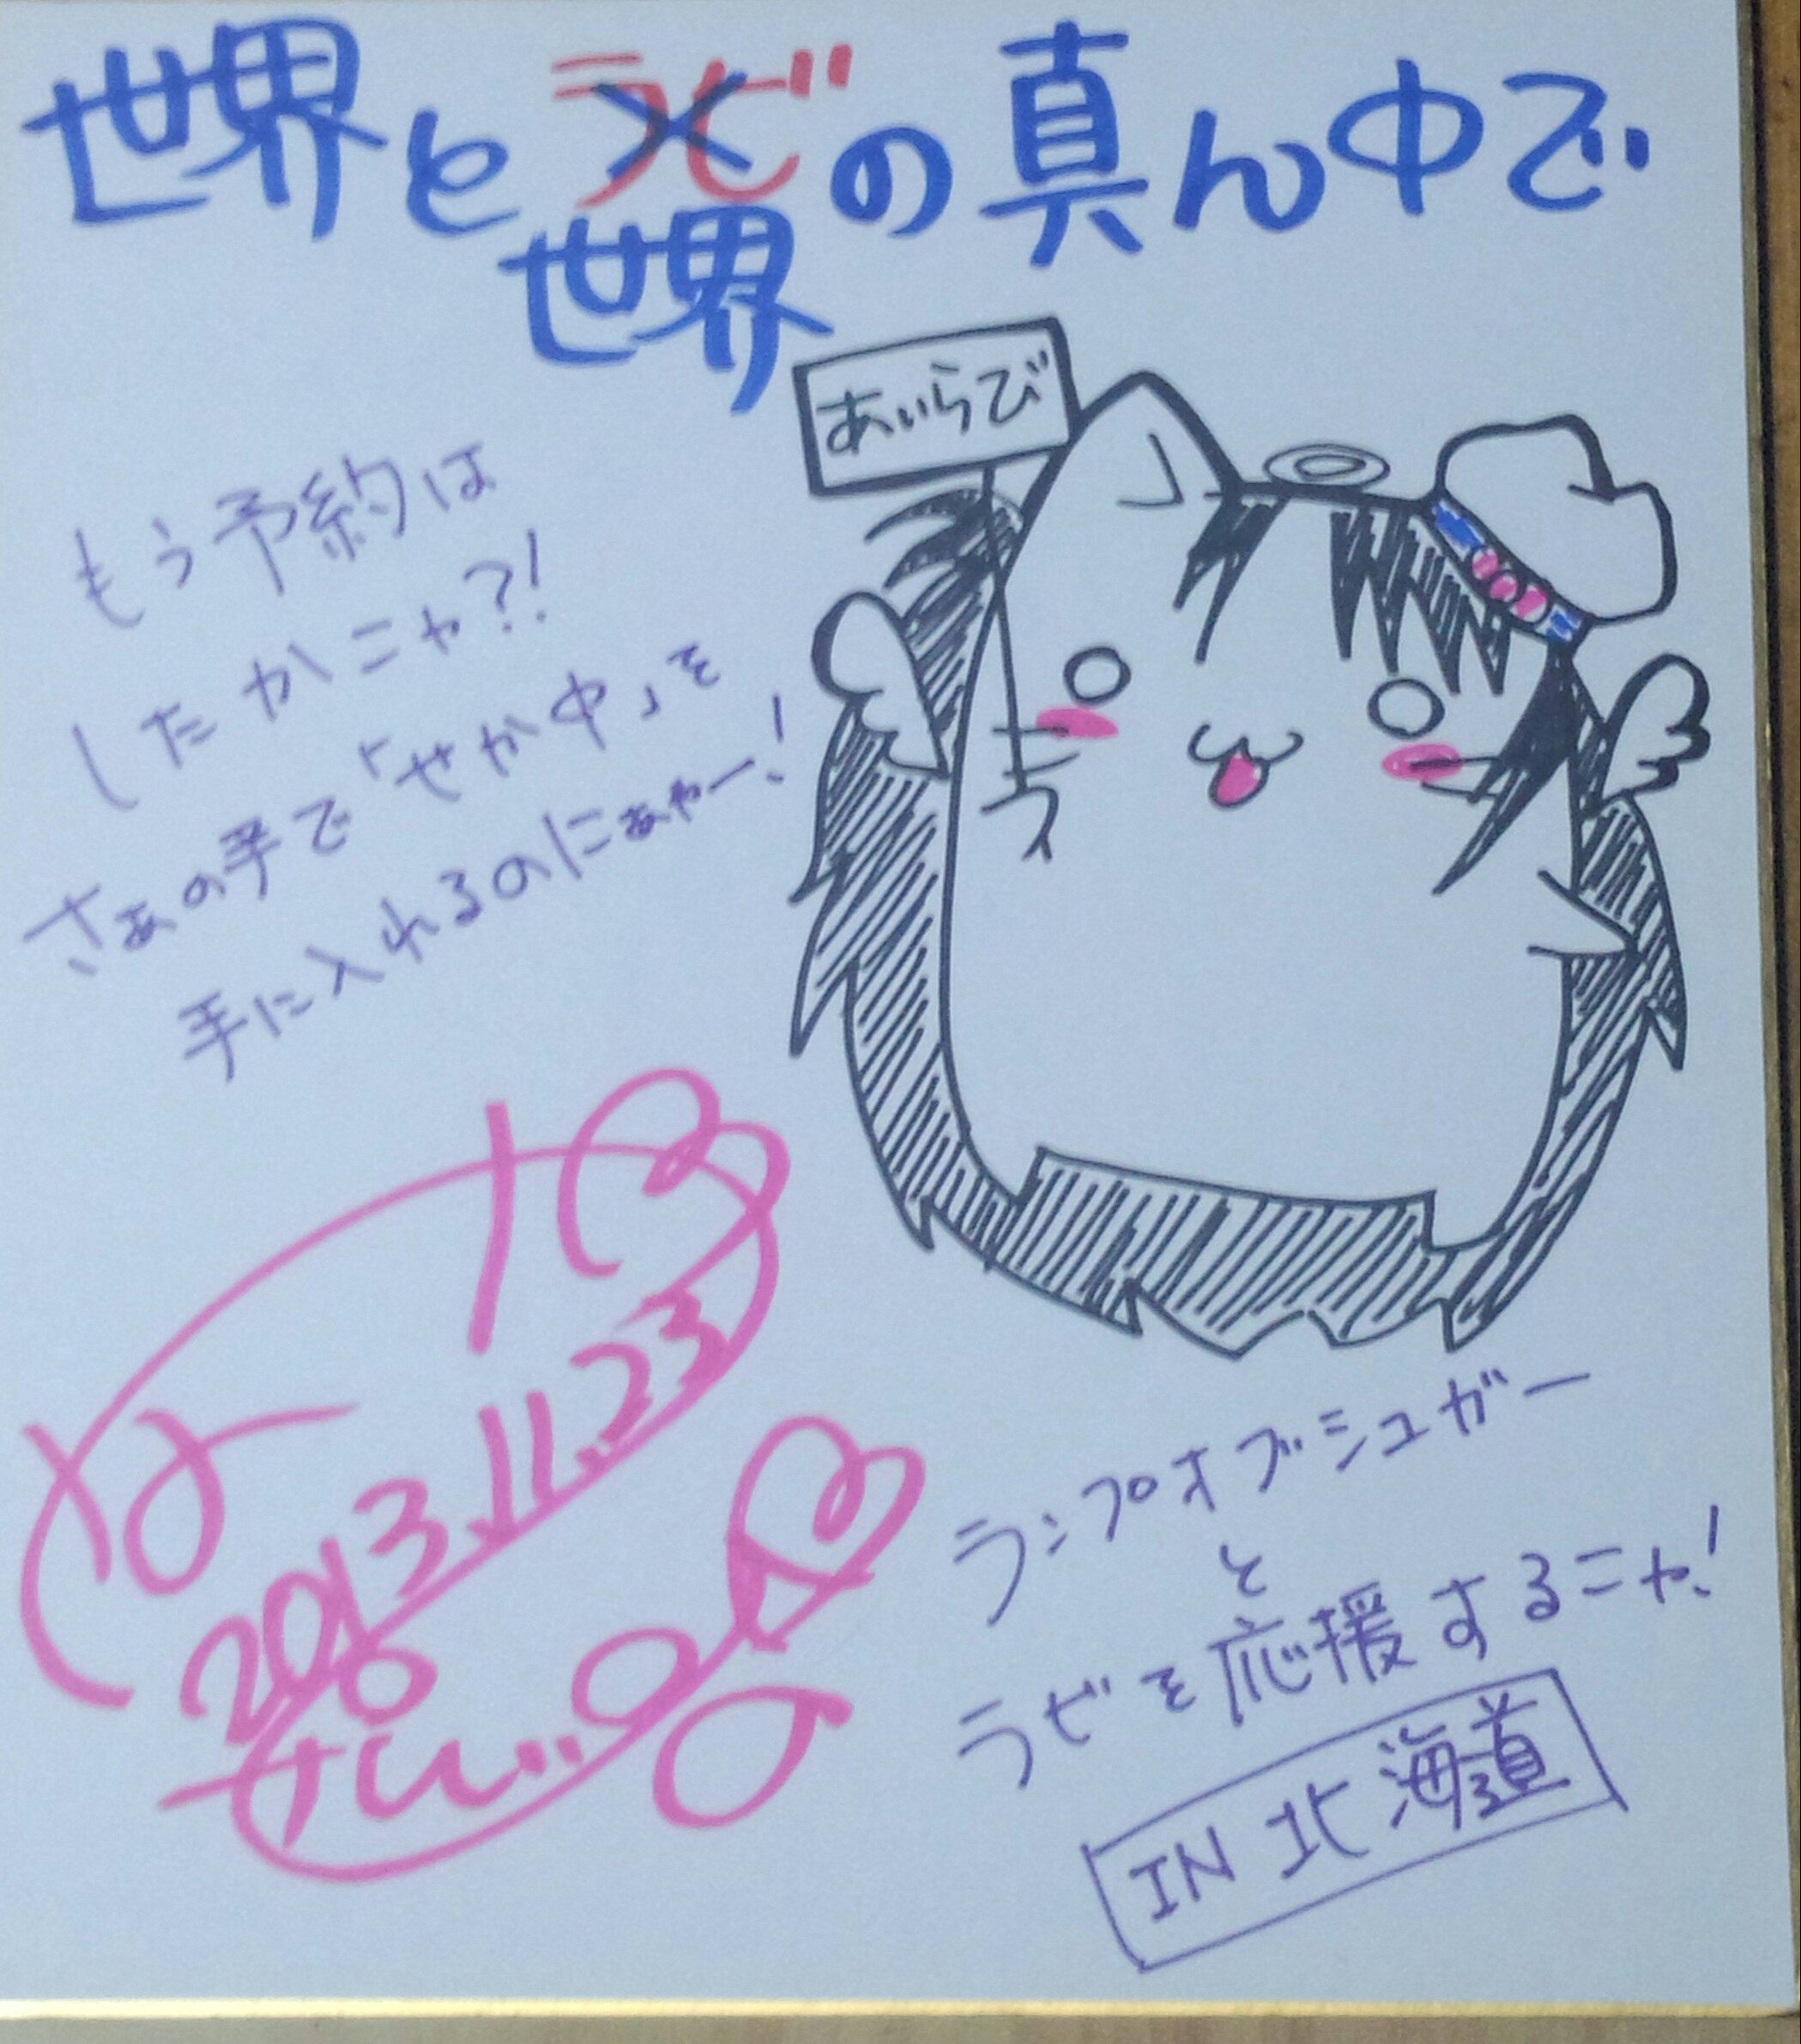 世界とラビの真ん中で
世界
あいらび
もう予約は
したかニャ?!
さぁの手で「せか中」を
手に入れるのにぁゃー!
2013.11.23
ランプオブシュガー
と
ラビを応援するニャ!
IN 北海道